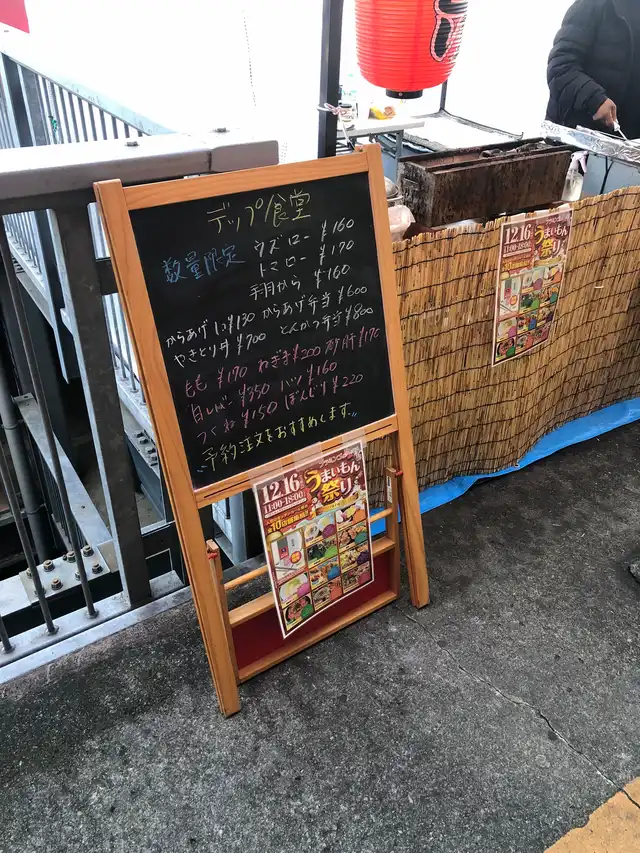 デップ食堂
数量限定
ウズロー ¥160
トマロー ¥170
手羽から ¥160
からあげ1コ¥130 からあげ弁当 ¥600
やきとり丼 ¥700 とんかつ弁当 ¥800
もも ¥190 ねぎま¥200 砂肝 ¥170
白レバー ¥350 ハツ ¥160
つくね ¥150 ぼんじり ¥220
予約注文をおすすめします
12.16
11:00-18:00
うまいもん
祭り
全10店舗集結!!
12.16
11:00-18:00
うまいもん
祭り